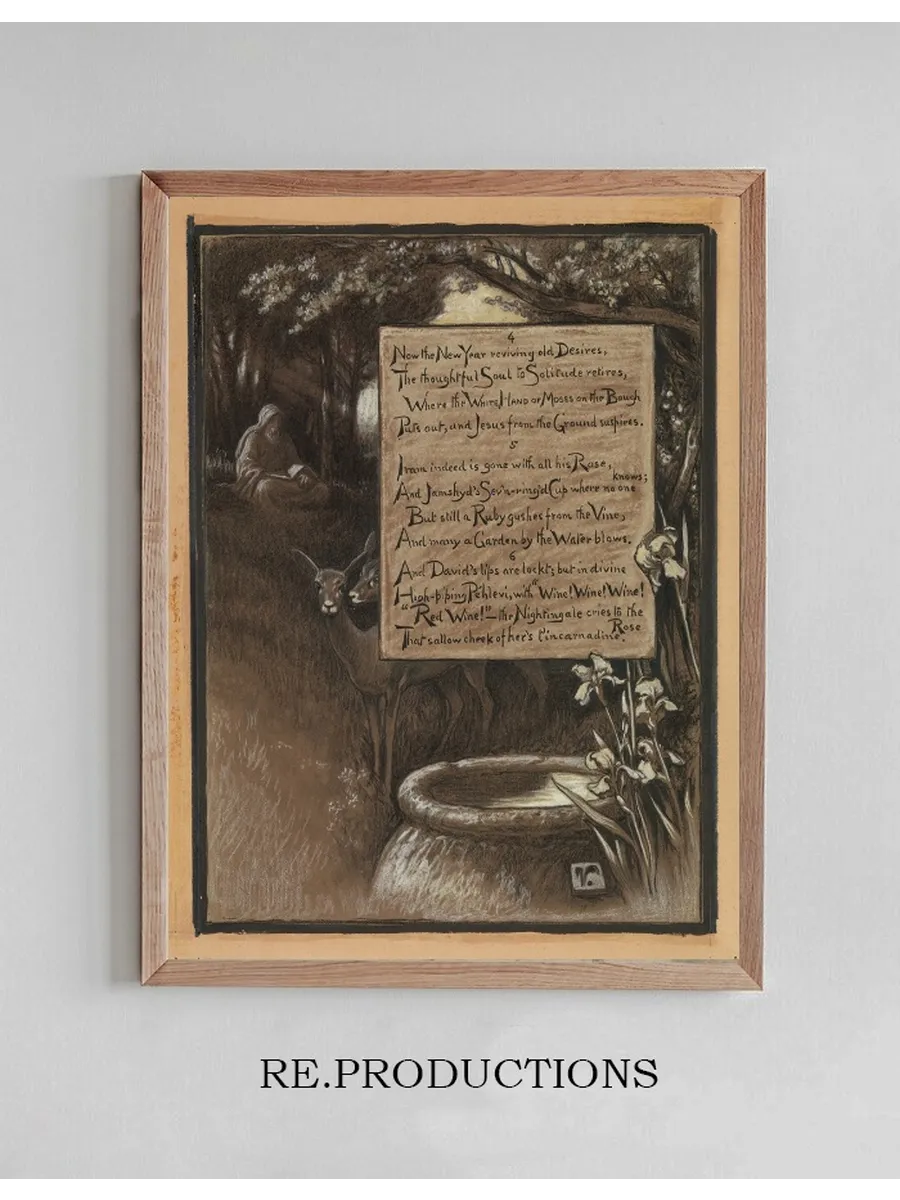 4
Now the New Year reviving old Desires,
The thoughtful Soul to Solitude retires,
Where the White Hand of Moses on the Bough
Puts out, and Jesus from the Ground suspires.
5
Iram indeed is gone with all his Rose,
And Jamshyd's Sev'n-ring'd Cup where no one knows;
But still a Ruby gushes from the Vine,
And many a Garden by the Water blows.
6
And David's lips are lockt; but in divine
High-piping Pehlevi, with "Wine! Wine! Wine!
"Red Wine!"—the Nightingale cries to the Rose
That sallow cheek of her's t'incarnadine.
RE.PRODUCTIONS